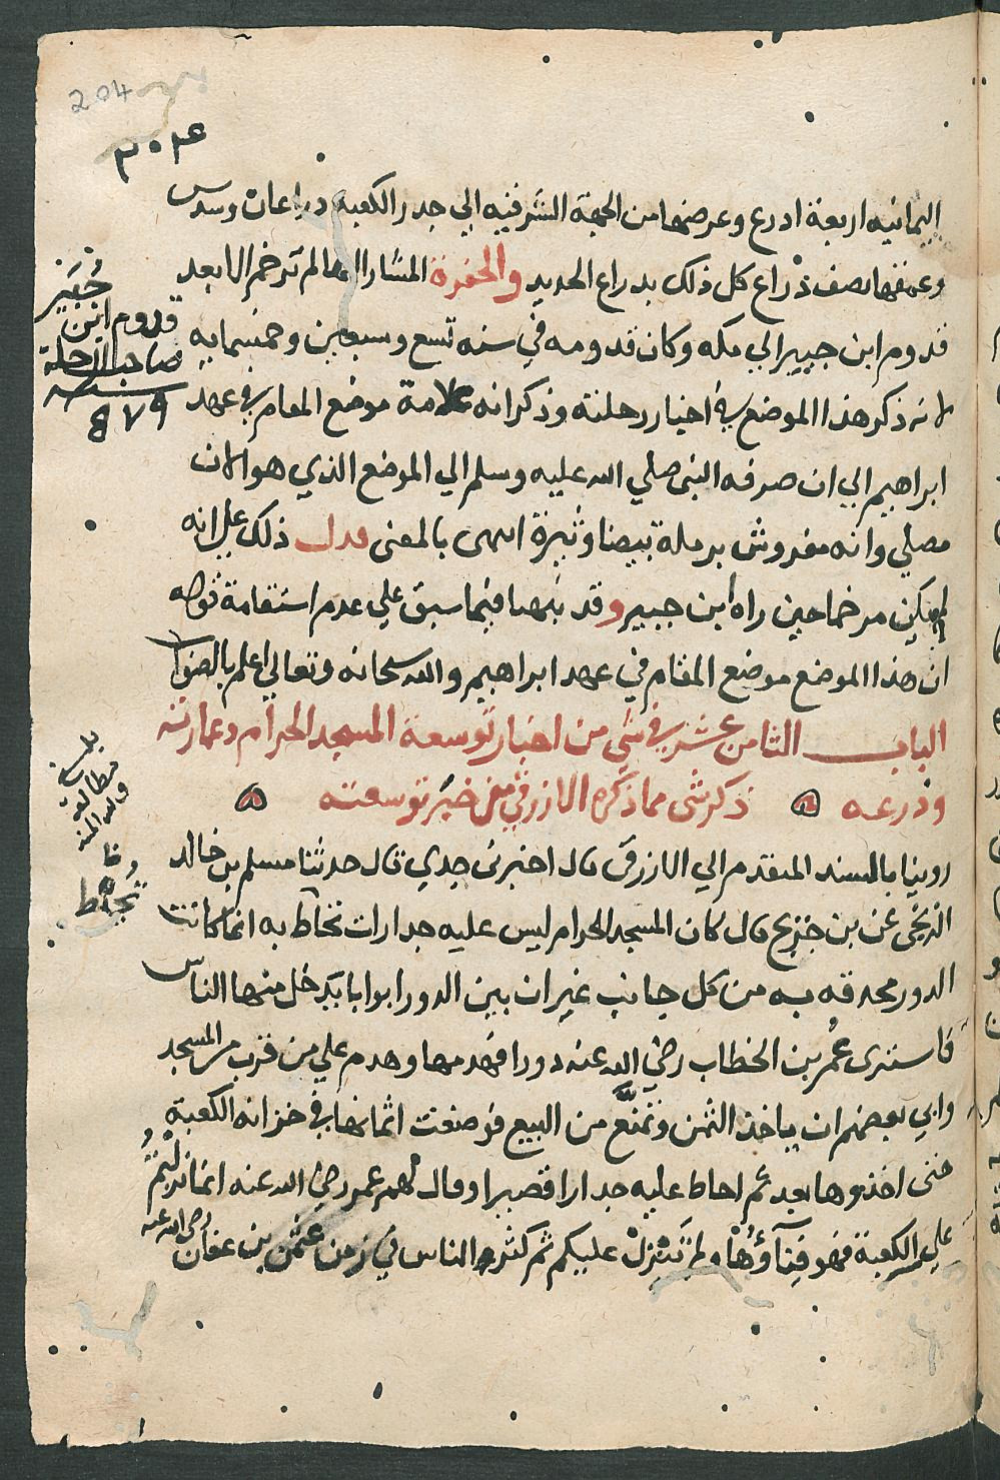 204
٢٠٤
اليمانيه اربعة اذرع وعرضها من الجهة الشرقيه الي جدر الكعبة ذراعان وسدس
وعمقها نصف ذراع كل ذلك بذراع الحديد والحفرة المشار اليها لم ترخم الا بعد
قدوم ابن جبير الي مكه وكان قدومه في سنه تسع وسبعين وخمسمايه
لانه ذكر هذا الموضع في اخبار رحلته وذكر انه علامة موضع المقام في عهد
ابراهيم الي ان صرفه النبي صلي الله عليه وسلم الي الموضع الذي هو الان
مصلي وانه مفروش برملة بيضا وثبرة انتهى بالمعنى فدل ذلك علي انه
لم يكن مرخما حين راه ابن جبير وقد نبهنا فيما سبق علي عدم استقامة قوله
ان هذا الموضع موضع المقام في عهد ابراهيم والله سبحانه وتعالي اعلم بالصواب
الباب الثامن عشر في شي من اخبار توسعة المسجد الحرام وعمارته
وذرعه ذكر شي مما ذكره الازرقي من خبر توسعته
روينا بالسند المتقدم الي الازرقي قال اخبرني جدي قال حدثنا مسلم بن خالد
الزنجي عن بن جريج قال كان المسجد الحرام ليس عليه جدارات تحاط به انما كانت
الدور محدقه به من كل جانب غير ان بين الدور ابوابا يدخل منها الناس
فاشترى عمر بن الخطاب رضي الله عنه دورا فهدمها وهدم علي من قرب من المسجد
وابي بعضهم ان ياخذ الثمن وتمنع من البيع فوضعت اثمانها في خزانه الكعبة
حتى اخذوها بعد ثم احاط عليه جدارا قصيرا وقال لهم عمر رضي الله عنه انما نزلتم
علي الكعبة فهو فناؤها ولم تنزل عليكم ثم كثر الناس في زمن عثمن بن عفان رضي الله عنه
قدوم ابن
جبير
صاحب الرحلة
سنة
٥٧٩
بلغ
مطالعة
ولله المنه
تحاط